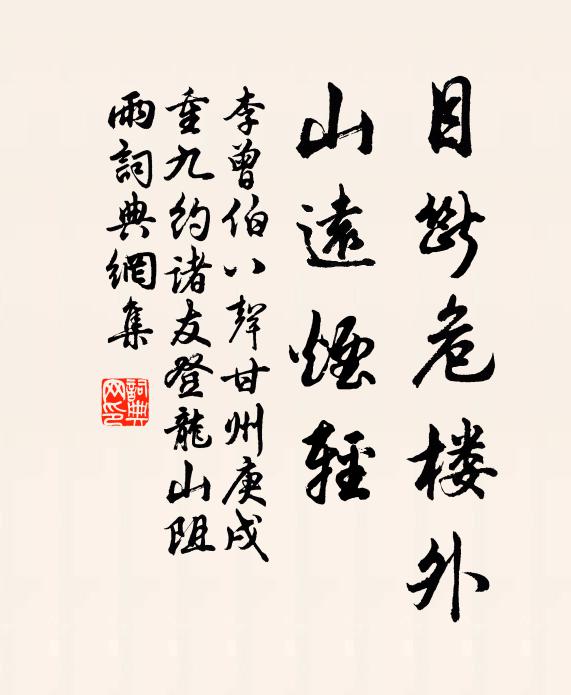 目断危楼外
山遠煙輕
李曾伯八聲甘州庚戌
重九約諸友登龍山阻
雨詞典網集
詞典网印